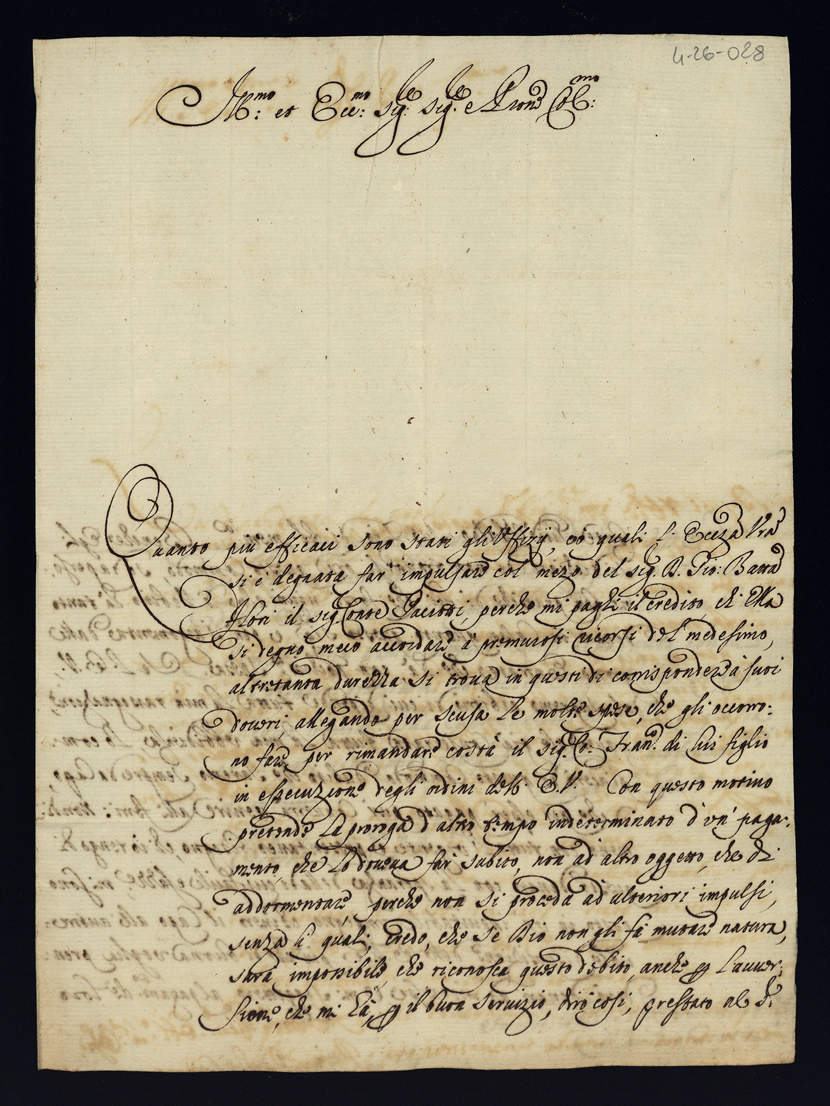 4-26-028
Ill:mo et Ecc:mo sig:re sig:re e Pron Col:mo
Quanto più efficaci sono stati gli Uffizÿ, co' quali l' Ecc.za Vra
si è degnata far impulsare col mezo del sig. D. Gio: Batta
il sig Conte Paciotti, perche mi paghi il credito, ch' Ella
si degnò meco accordare a' premurosi ricorsi del medesimo,
altretanta durezza si trova in questi di corrispondere à suoi
doveri, allegando per scusa le molte spese, che gli occorro:
no fare per rimandare costà il sig. Co: Fran. di lui figlio
in essecuzione degli ordini dell' E.V. Con questo motivo
pretende la proroga d' altro tempo indeterminato d' un' paga:
mento, che lo doveva far subito, non ad' altro oggetto, che di
addormentare, perche non si proceda ad ulteriori impulsi,
senza li quali, credo, che se Dio non gli fà mutare natura,
sarà impossibile, che riconosca questo debito, anche p l'auver:
sione, che mi hà, p il buon servizio, dirò così, prestato al